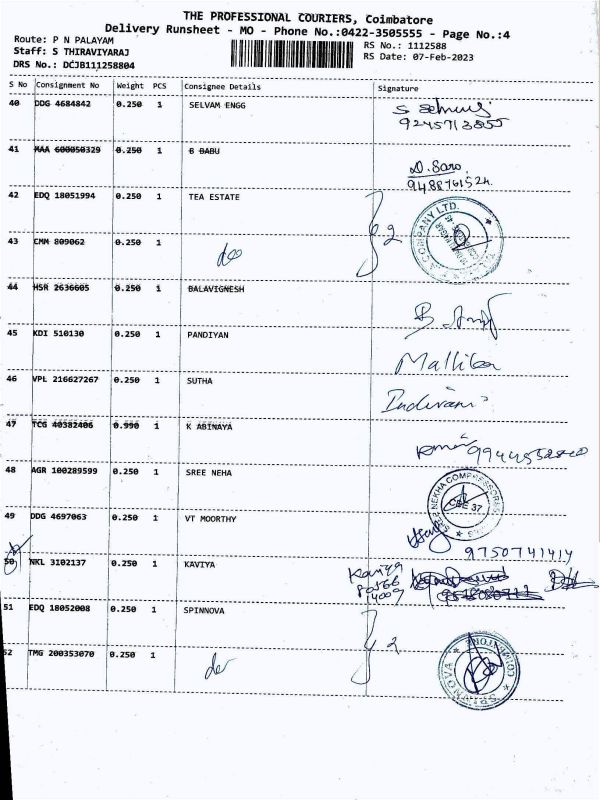 THE PROFESSIONAL COURIERS, Coimbatore
Delivery Runsheet - MO - Phone No.:0422-3505555 - Page No.:4
Route: P N PALAYAM
RS No.: 1112588
Staff: S THIRAVIYARAJ
RS Date: 07-Feb-2023
DRS No.: DCJB111258804
S No Consignment No Weight PCS Consignee Details Signature
40 DDG 4684842 0.250 1 SELVAM ENGG
41 MAA 600050329 0.250 1 B BABU
D. Saro
42 EDQ 18051994 0.250 1 TEA ESTATE
COMPANY LTD.
2
43 CMM 809062 0.250 1
44 HSR 2636605 0.250 1 BALAVIGNESH
45 KDI 510130 0.250 1 PANDIYAN
Mallika
46 VPL 216627267 0.250 1 SUTHA
Indirani
47 TCG 40382406 0.990 1 K ABINAYA
48 AGR 100289599 0.250 1 SREE NEHA
NEKHA COMPRESSORS
CBE 37
49 DDG 4697063 0.250 1 VT MOORTHY
9750741414
50 NKL 3102137 0.250 1 KAVIYA
Kaviya
51 EDQ 18052008 0.250 1 SPINNOVA
2
52 TMG 200353070 0.250 1
SPINNOVA